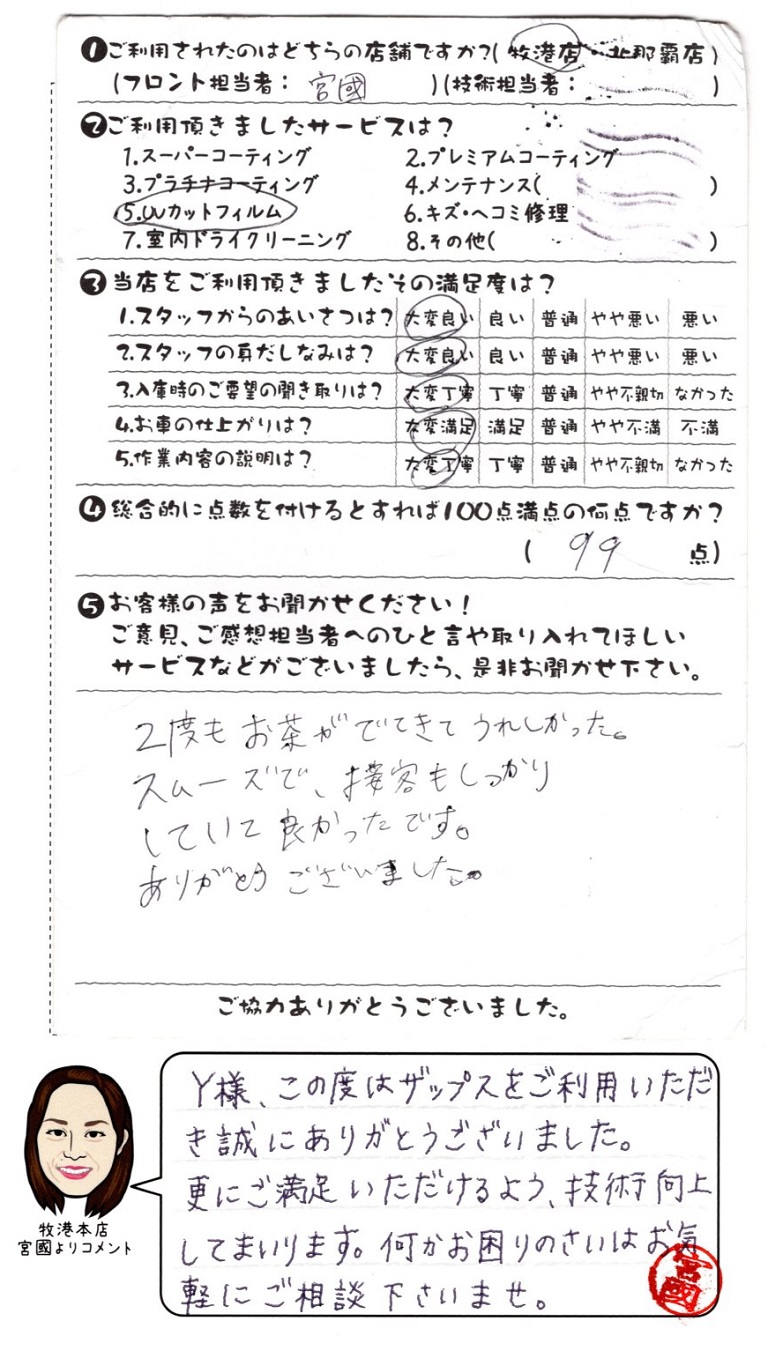 ❶ご利用されたのはどちらの店舗ですか?(牧港店・北那覇店)
(フロント担当者: 宮國 )(技術担当者: )
❷ご利用頂きましたサービスは?
1.スーパーコーティング 2.プレミアムコーティング
3.プラチナコーティング 4.メンテナンス( )
5.UVカットフィルム 6.キズ・ヘコミ修理
7.室内ドライクリーニング 8.その他( )
❸当店をご利用頂きましたその満足度は?
1.スタッフからのあいさつは? 大変良い 良い 普通 やや悪い 悪い
2.スタッフの身だしなみは? 大変良い 良い 普通 やや悪い 悪い
3.入庫時のご要望の聞き取りは? 大変丁寧 丁寧 普通 やや不親切 なかった
4.お車の仕上がりは? 大変満足 満足 普通 やや不満 不満
5.作業内容の説明は? 大変丁寧 丁寧 普通 やや不親切 なかった
❹総合的に点数を付けるとすれば100点満点の何点ですか?
( 99 点)
❺お客様の声をお聞かせください!
ご意見、ご感想担当者へのひと言や取り入れてほしい
サービスなどがございましたら、是非お聞かせ下さい。
2度もお茶がでてきてうれしかった。
スムーズで、接客もしっかり
していて良かったです。
ありがとうございました。
ご協力ありがとうございました。
Y様、この度はザップスをご利用いただ
き誠にありがとうございました。
更にご満足いただけるよう、技術向上
してまいります。何かお困りのさいはお気
軽にご相談下さいませ。
宮國
牧港本店
宮國よりコメント